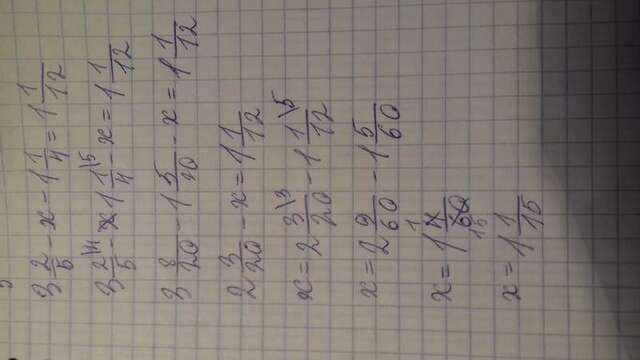 3 2/5 - x - 1 1/4 = 1 1/12
3 2/5 \4 - x 1 1/4 \5 - x = 1 1/12
3 8/20 - 1 5/20 - x = 1 1/12
2 3/20 - x = 1 1/12
x = 2 3/20 \3 - 1 1/12 \5
x = 2 9/60 - 1 5/60
x = 1 4/60 1 15
x = 1 1/15